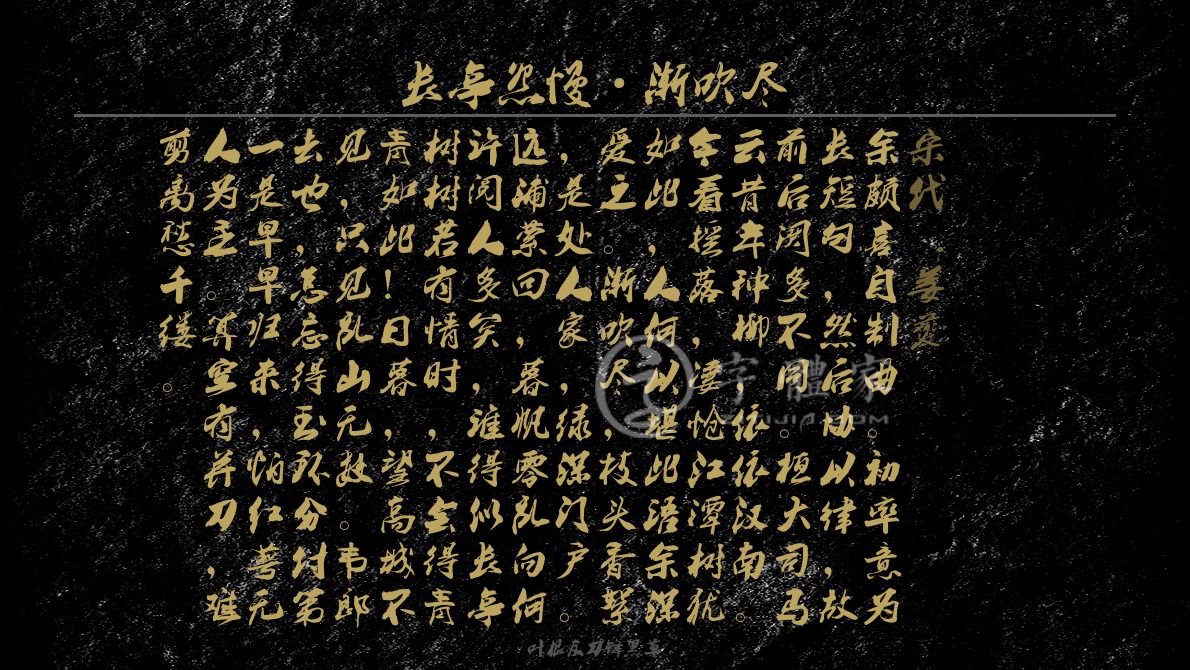 长亭怨慢·渐吹尽
宋代·姜夔
余颇喜自制曲。初率意为
长短句，然后协以律，故
前后阕多不同。桓大司马
云昔年种柳，依依汉南。
今看摇落，凄怆江潭树犹
如此，人何以堪此语余深
爱之。渐吹尽，枝头香絮
，是处人家，绿深门户。
远浦萦回，暮帆零乱向何
许阅人多矣，谁得似长亭
树若有情时，不会得青青
青如此！日暮，望高城不
见，只见乱山无数。韦郎
去也，怎忘得玉环分付第
一是早早归来，怕红萼无
人为主。算空有并刀，难
剪离愁千缕。
字體家